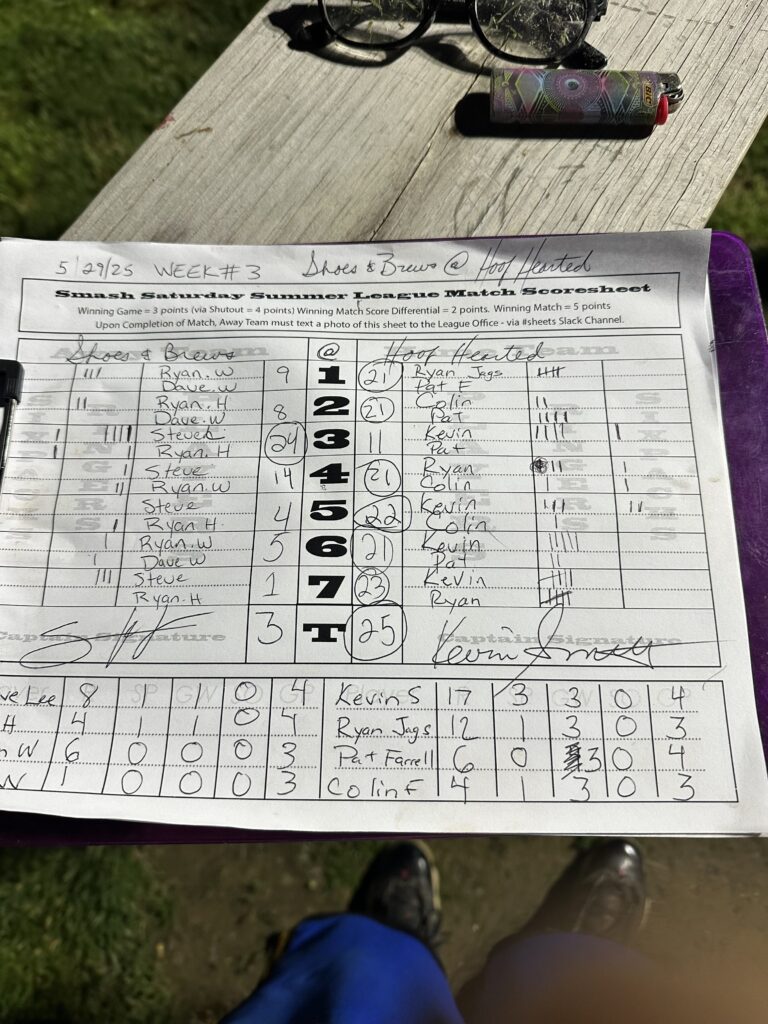 5/29/25 WEEK #3 Shoes & Brews @ Hoof Hearted
Smash Saturday Summer League Match Scoresheet
Winning Game = 3 points (via Shutout = 4 points) Winning Match Score Differential = 2 points. Winning Match = 5 points
Upon Completion of Match, Away Team must text a photo of this sheet to the League Office - via #sheets Slack Channel.
Shoes & Brews @ Hoof Hearted
Ryan.W 9 1 21 Ryan Jags
Dave.W Pat F
Ryan.H 8 2 21 Colin
Dave.W Pat
Steve 24 3 11 Kevin
Ryan.H Pat
Steve 14 4 21 Ryan
Ryan.W Colin
Steve 4 5 22 Kevin
Ryan H. Colin
Ryan.W 5 6 21 Kevin
Dave W Pat
Steve 1 7 23 Kevin
Ryan.H Ryan
3 T 25
Captain Signature Captain Signature
Kevin Smith
ve Lee 8 1 1 0 4 Kevin S 17 3 3 0 4
H 4 1 1 0 4 Ryan Jags 12 1 3 0 3
n W 6 0 0 0 3 Pat Farrell 6 0 3 0 4
W 1 0 0 0 3 Colin F 4 1 3 0 3
BIC